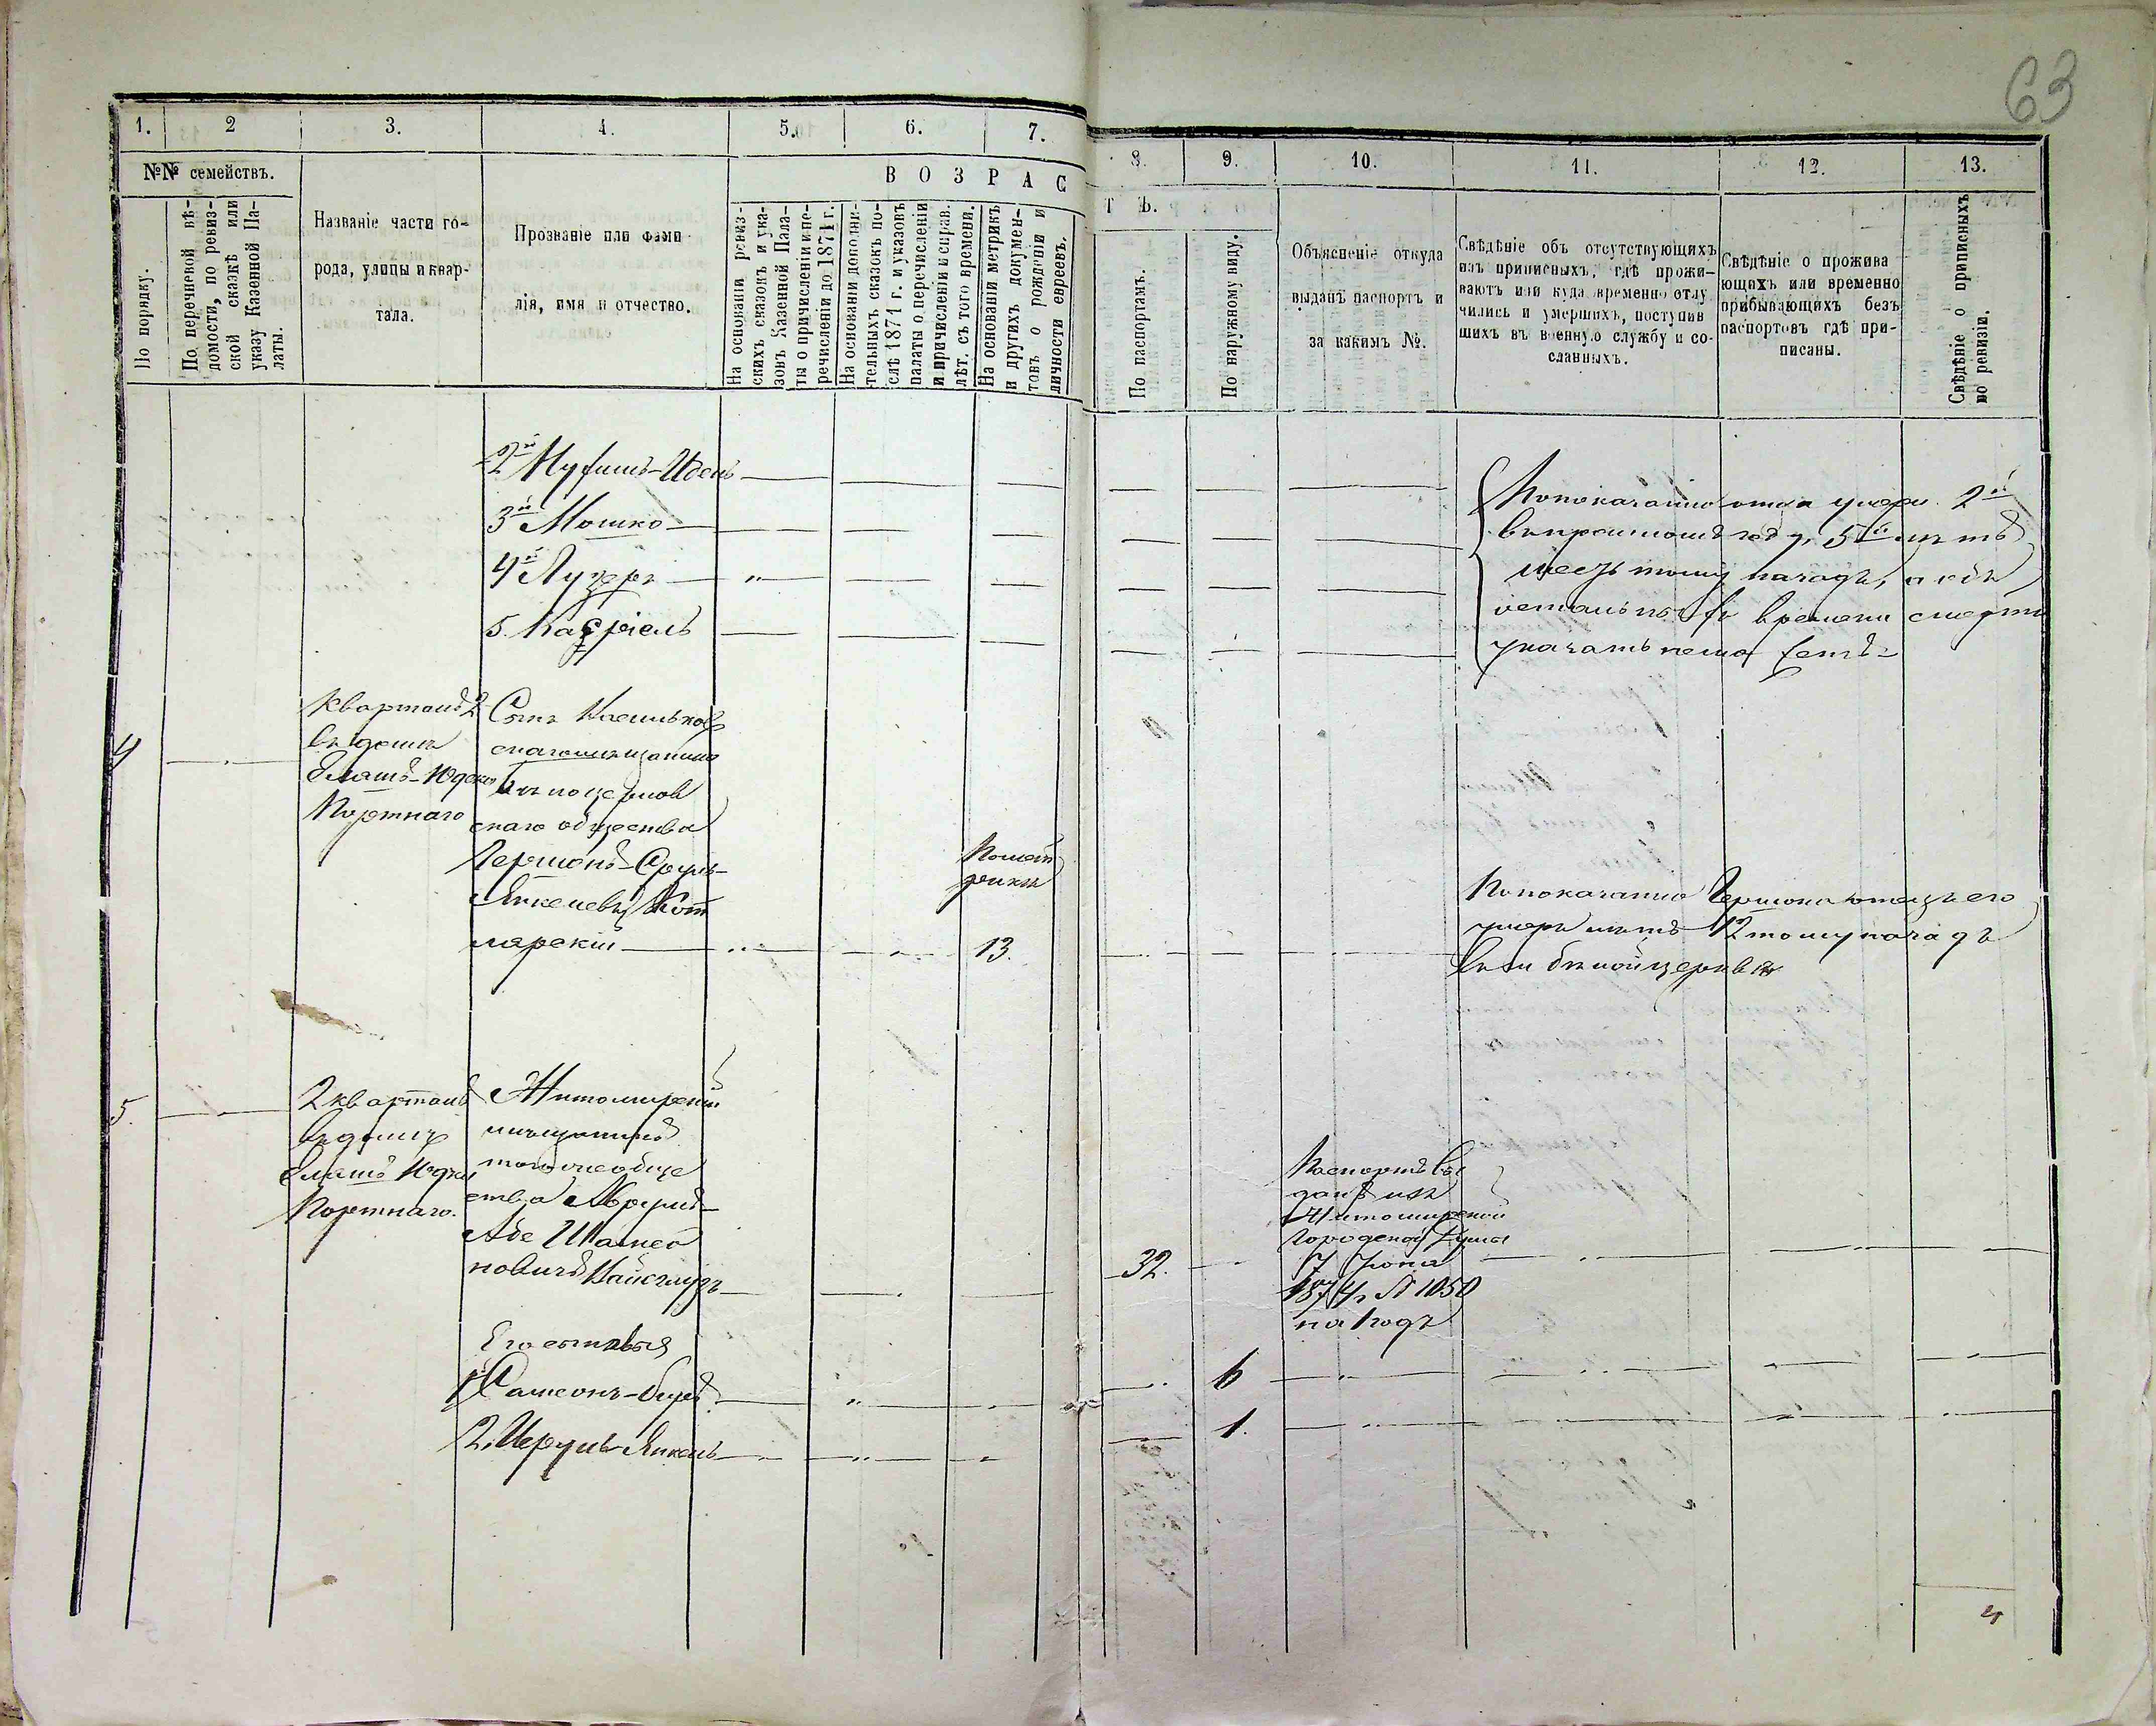 63
1. 2 3. 4. 5. 6. 7. 8. 9. 10. 11. 12. 13.
№№ семействъ.
По порядку.
По перечневой вѣ-
домости, по ревиз-
ской сказкѣ или
указу Казенной Па-
латы.
Названіе части го-
рода, улицы и квар-
тала.
Прозваніе или фами-
лія, имя и отчество.
ВОЗРАСТЪ.
На основаніи ревиз-
скихъ сказокъ и ука-
зовъ Казенной Пала-
ты о причисленіи и пе-
речисленіи до 1871 г.
На основаніи дополни-
тельныхъ сказокъ по-
слѣ 1871 г. и указовъ
палаты о перечисленіи
и причисленіи и справ.
лѣт. съ того времени.
На основаніи метрикъ
и другихъ докумен-
товъ о рожденіи и
личности евреевъ.
По паспортамъ.
По наружному виду.
Объясненіе откуда
выданъ паспортъ и
за какимъ №.
Свѣдѣніе объ отсутствующихъ
изъ приписныхъ, гдѣ прожи-
ваютъ или куда временно отлу
чились и умершихъ, поступив
шихъ въ военную службу и со-
сланныхъ.
Свѣдѣніе о прожива
ющихъ или временно
прибывающихъ безъ
паспортовъ гдѣ при-
писаны.
Свѣдѣніе о приписныхъ
по ревизіи.
2й
3й Мошко
4й Лузеръ
5. Касріель
По показанію отца умерли 2й
въ прошломъ году, 5й лѣтъ
шесть тому назадъ, а объ
остальныхъ времени смерти
указать не можетъ
4
Кварталъ 2
въ домѣ
Юдки
Портнаго
Сынъ Васильков
скаго мѣщанина
Бѣлоцерков
скаго общества
Гершонъ-Сруль
Янкелевъ Кот
лярскій
По мет
рикѣ
13.
По показанію Гершона отецъ его
умеръ лѣтъ 12 тому назадъ
въ м Бѣлой церкви
5.
2 кварталъ
въ домѣ
Юдки
Портнаго.
Житомирскій
мѣщанинъ
того же обще
ства Аврумъ-
Абе Шамсо
новичъ
32.
Паспортъ вы
данъ изъ
Житомирской
Городской Думы
7 Іюня
1874 г. № 1050
на 1 годъ
Его сыновья
1й Самсонъ-Беръ
6
2. Іерухъ Янкель
1.
4